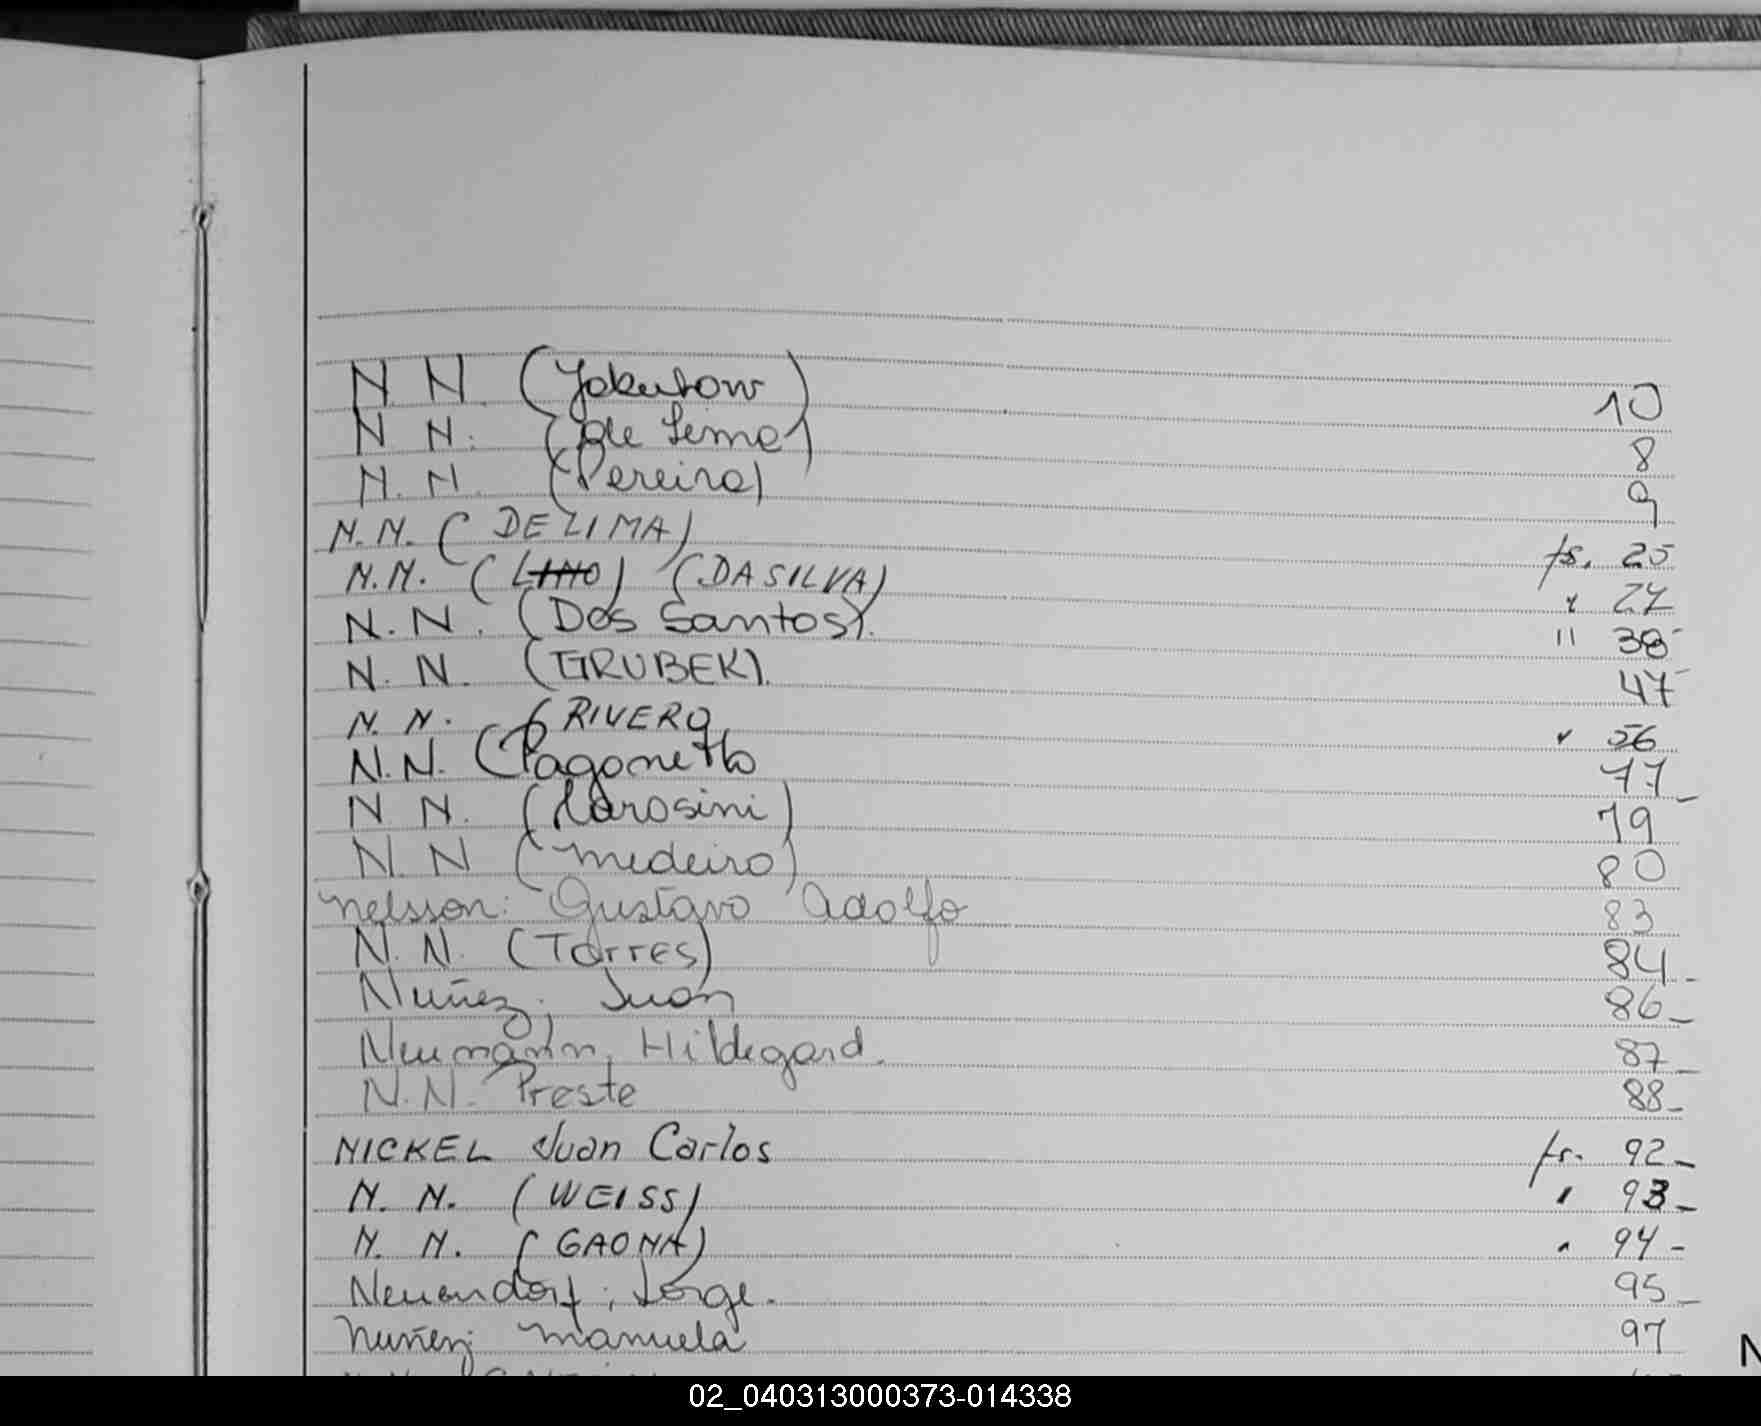 N. N. (Yakubow) 10
N N. (de Lima) 8
N. N. (Pereira) 9
N.N. (DE LIMA) fs. 25
N.N. (LINO) (DA SILVA) " 27
N.N. (Dos Santos). " 38
N. N. (GRUBEK). 47
N. N. (RIVERO " 56
N.N. (Pagonetto 77
N N. (Marosini) 79
N. N (Medeiro) 80
Nelsson: Gustavo Adolfo 83
N. N. (Torres) 84
Nuñez, Juan 86
Neumann, Hildegard. 87
N.N. Preste 88
NICKEL Juan Carlos fs. 92
N. N. (WEISS) " 93
N. N. (GAONA) " 94
Neuendorf, Jorge. 95
Nuñez, Manuela 97
N
02_040313000373-014338